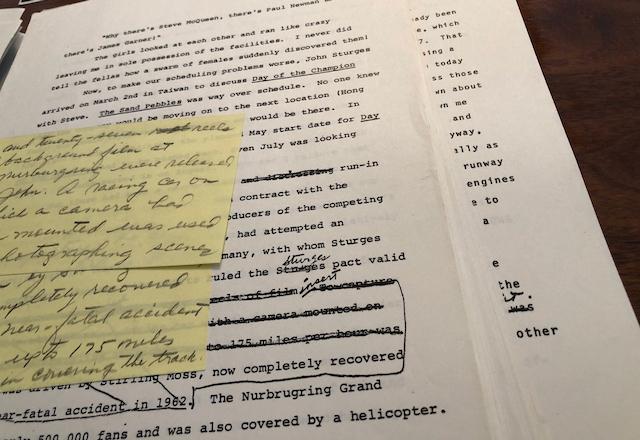 "Why there's Steve McQueen, there's Paul Newman
there's James Garner!"
The girls looked at each other and ran like crazy
leaving me in sole possession of the facilities. I never did
tell the fellas how a swarm of females suddenly discovered them!
Now, to make our scheduling problems worse, John Sturges
arrived on March 2nd in Taiwan to discuss Day of the Champion
with Steve. The Sand Pebbles was way over schedule. No one knew
would be moving on to the next location (Hong
would be there. In
May start date for Day
ven July was looking
and discussing run-in
contract with the
oducers of the competing
, had attempted an
many, with whom Sturges
Sturges
ruled the Struges pact valid
insert
reels of film. So capture
ith a camera mounted on
to 175 miles per hour was
was driven by Stirling Moss, now completely recovered
ear-fatal accident in 1962. The Nurbrugring Grand
500,000 fans and was also covered by a helicopter.
and twenty-seven reels
background film at
Nurburgring were released
John. A racing car on
which a camera had
mounted was used
photographing scenes
completely recovered
near-fatal accident
up to 175 miles
in covering the track.
ady been
, which
7. That
ing a
today
ss those
wn about
wn me
and
yway.
lly as
runway
engines
e to
a
e
the
it.
was
other